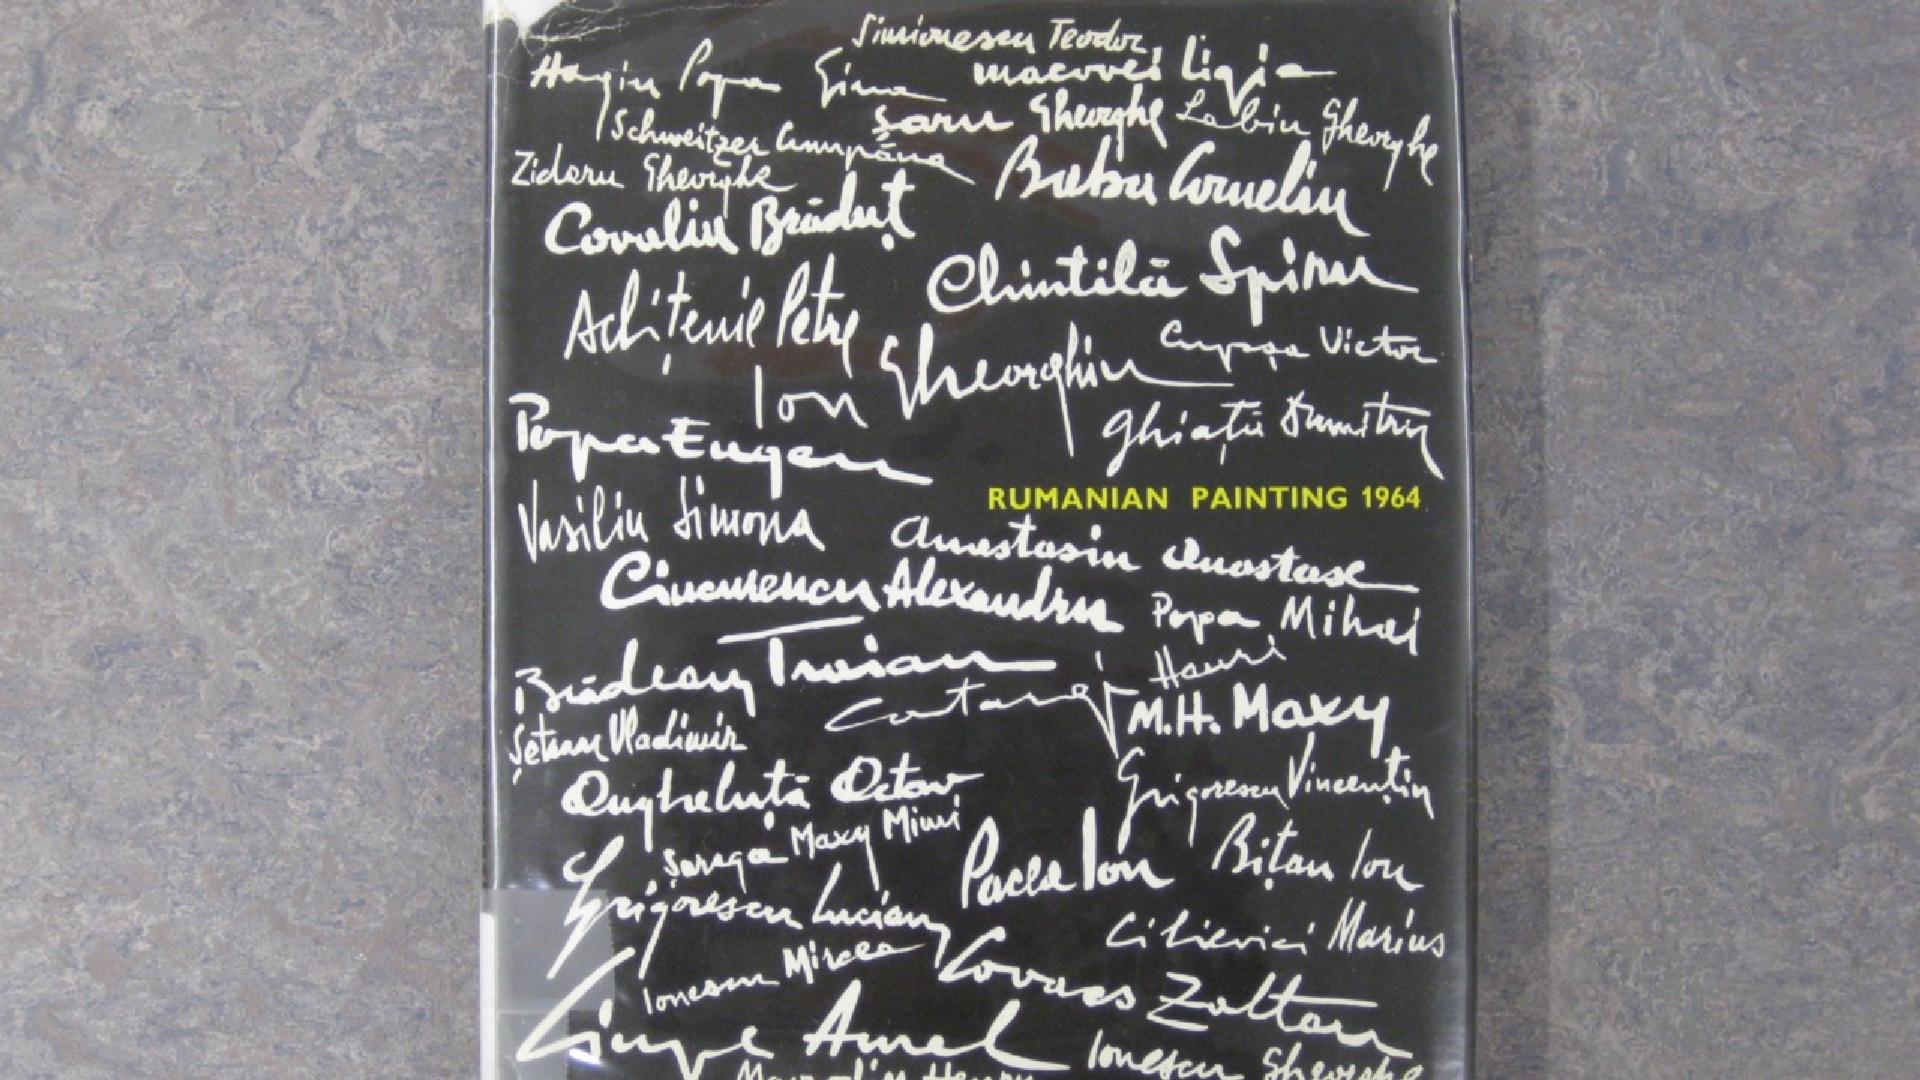 Simionescu Teodor
Hagiu Popa Gina
macovei Ligia
Șaru Gheorghe
Labin Gheorghe
Schweitzer Cumpăna
Zidaru Gheorghe
Baba Corneliu
Covaliu Brăduț
Chintilă Spiru
Achițenie Petre
Cupșa Victor
Ion Gheorghiu
Ghiață Dumitru
Popa Eugen
RUMANIAN PAINTING 1964
Vasiliu Simona
Anastasiu Anastase
Ciucurencu Alexandru
Popa Mihai
Brădean Traian
Catargi Henri
M.H. Maxy
Șetran Vladimir
Angheluță Octav
Grigorescu Vincențiu
Maxy Mimi
Șaraga
Pacea Ion
Bițan Ion
Grigorescu Lucian
Cilievici Marius
Ionescu Mircea
Covacs Zoltan
Ciupe Aurel
Ionescu Gheorghe
Henry